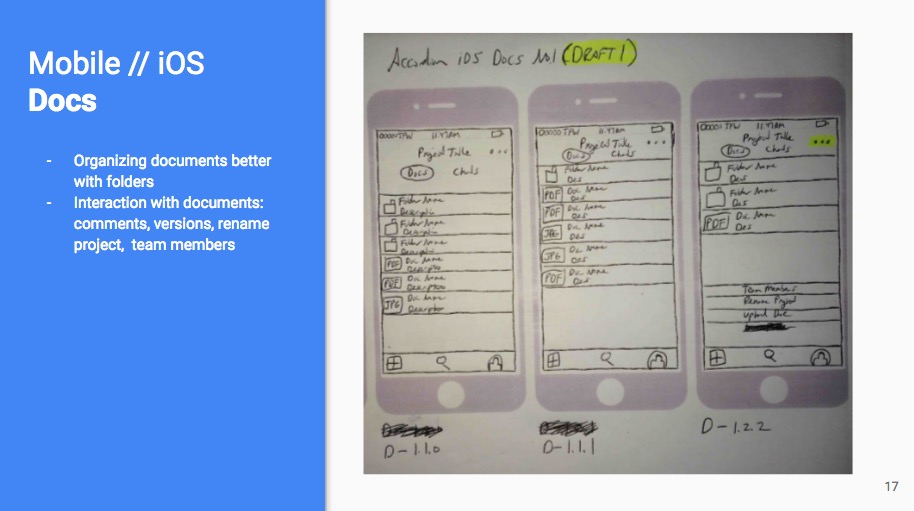 Mobile // iOS
Docs
- Organizing documents better
with folders
- Interaction with documents:
comments, versions, rename
project, team members
Accordion iOS Docs No1 (DRAFT 1)
OOOOO TPW 11:47AM
Project Title
Docs Chats
Folder Name
Description
Folder Name
Description
Folder Name
Description
PDF Doc Name
Description
PDF Doc Name
Description
JPG Doc Name
Description
D-1.1.0
OOOOO TPW 11:47AM
Project Title
Docs Chats
Folder Name
Des
PDF Doc Name
Des
PDF Doc Name
Des
JPG Doc Name
Des
JPG Doc Name
Des
PDF Doc Name
Des
D-1.1.1
OOOOO TPW 11:47AM
Project Title
Docs Chats
Folder Name
Des
Folder Name
Des
PDF Doc Name
Des
Team Members
Rename Project
Upload Doc
D-1.2.2
17